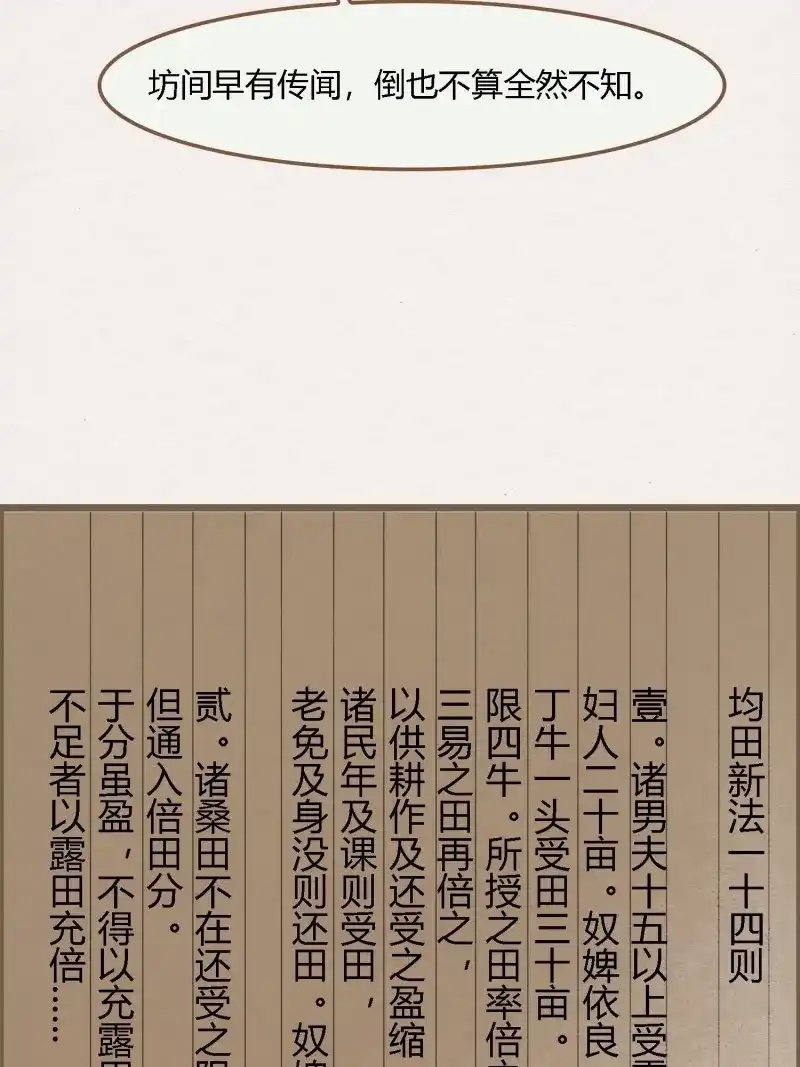 坊间早有传闻，倒也不算全然不知。
均田新法一十四则
壹。诸男夫十五以上受
妇人二十亩。奴婢依良
丁牛一头受田三十亩。
限四牛。所授之田率倍
三易之田再倍之，
以供耕作及还受之盈缩
诸民年及课则受田，
老免及身没则还田。奴
贰。诸桑田不在还受之
但通入倍田分。
于分虽盈，不得以充露
不足者以露田充倍……